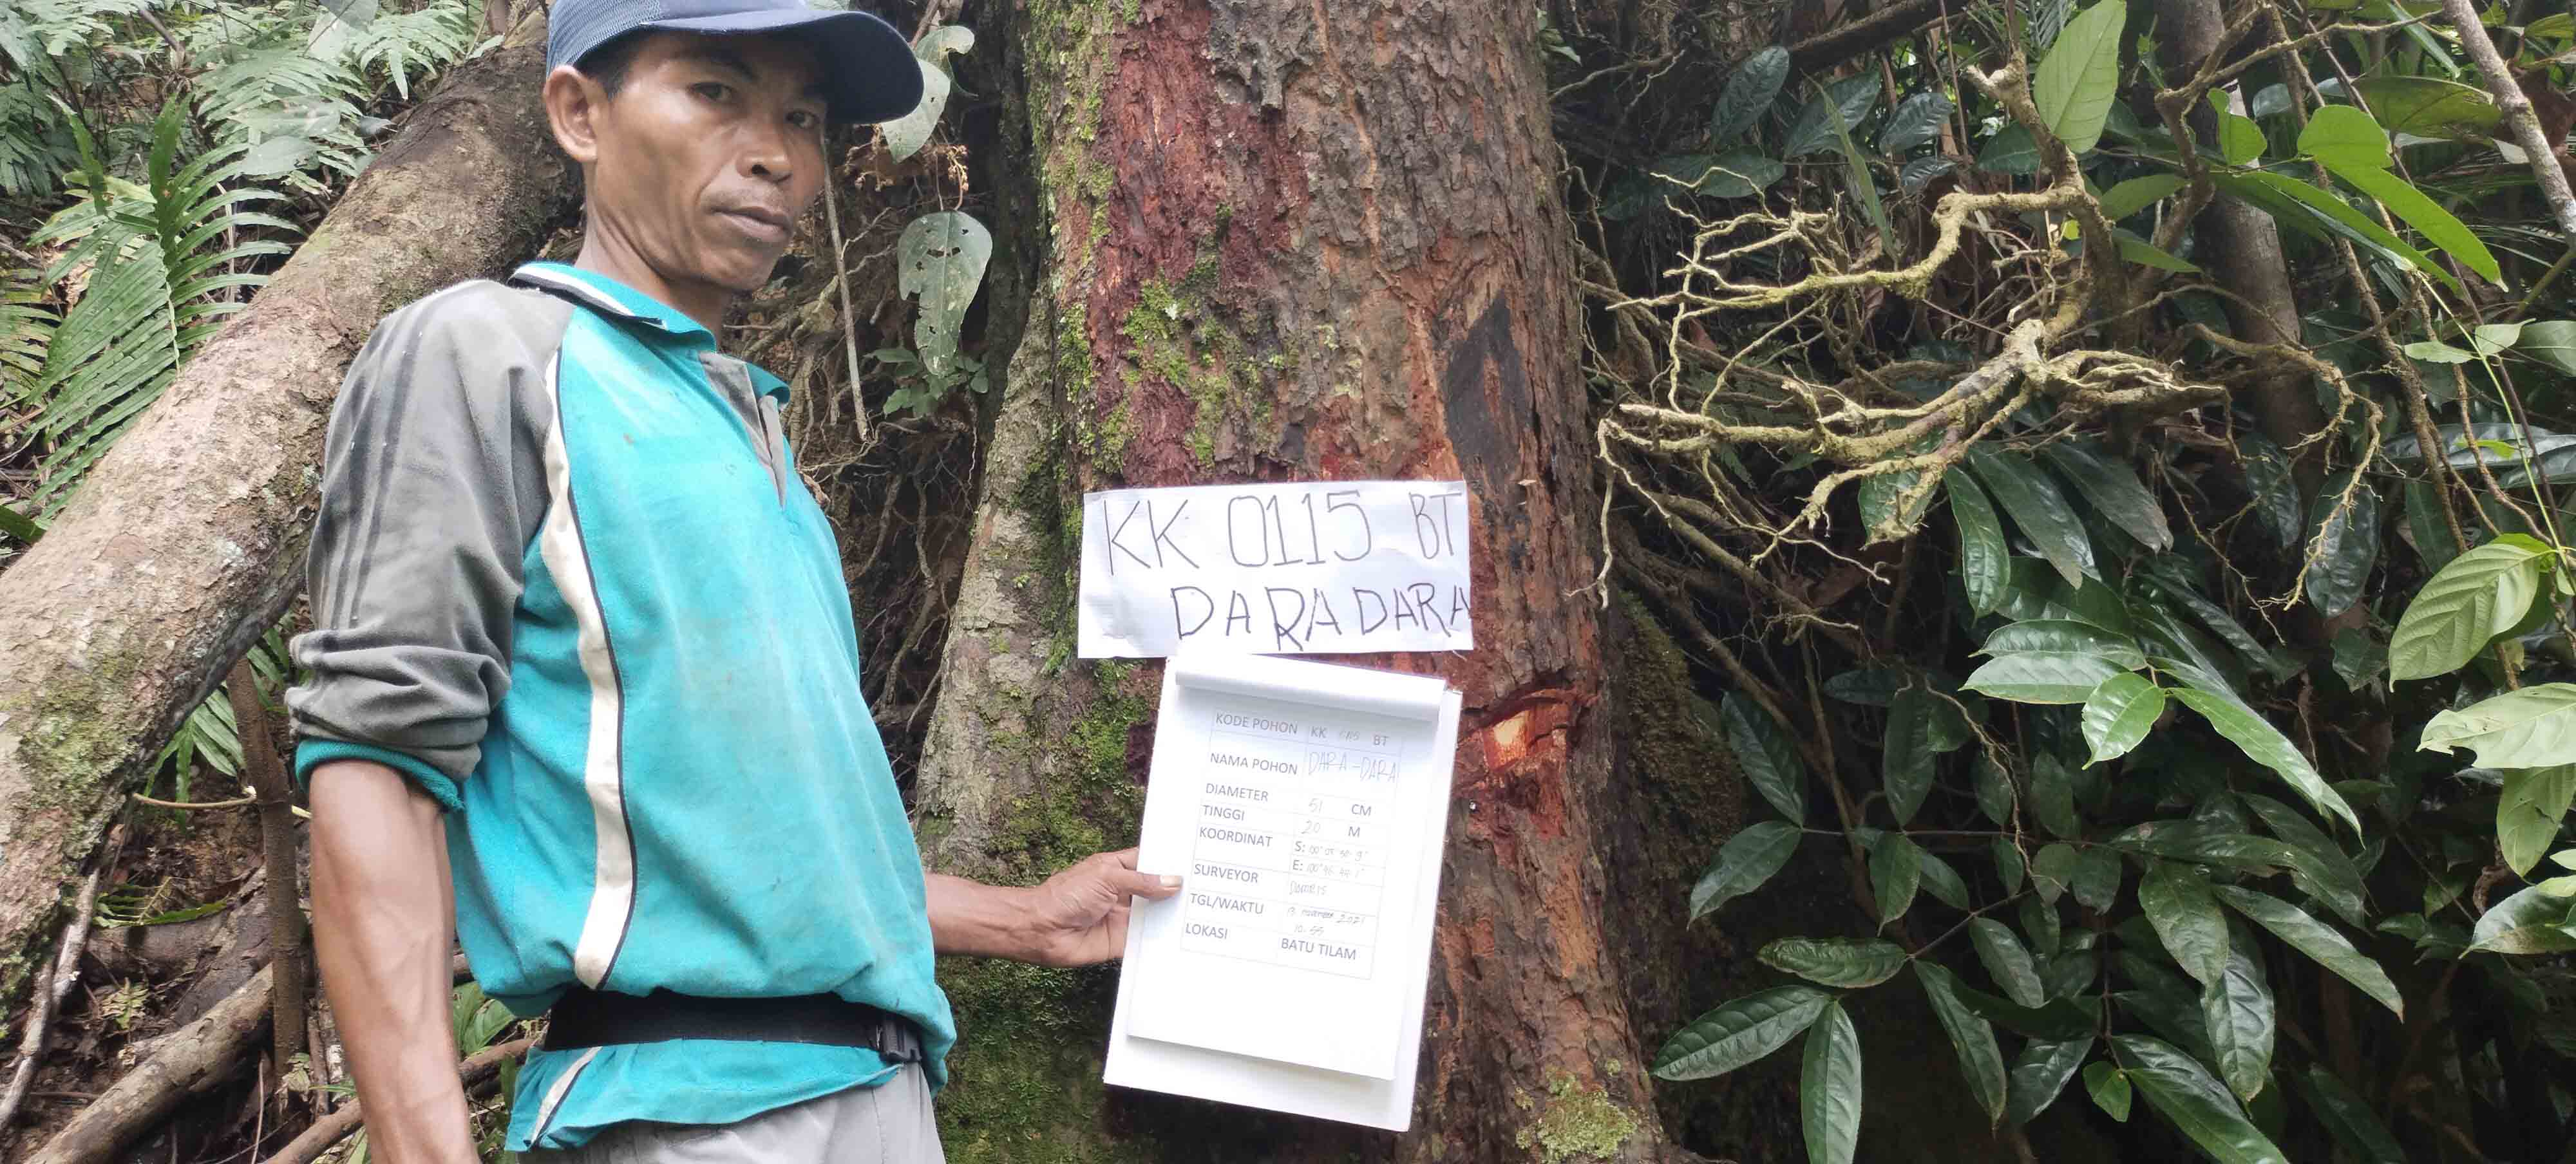 KK 0115 BT
DARA DARA
KODE POHON KK 0115 BT
NAMA POHON DARA-DARA
DIAMETER 51 CM
TINGGI 20 M
KOORDINAT S: 00°
E: 100°
SURVEYOR
TGL/WAKTU 13 november 2021
10.55
LOKASI BATU TILAM